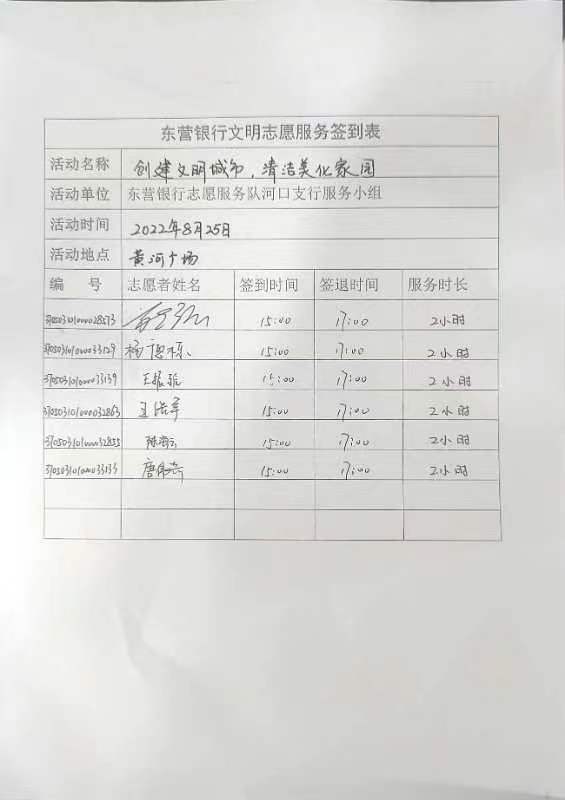 东营银行文明志愿服务签到表
活动名称 创建文明城市，清洁美化家园
活动单位 东营银行志愿服务队河口支行服务小组
活动时间 2022年8月25日
活动地点 黄河广场
编 号 志愿者姓名 签到时间 签退时间 服务时长
37050310100028573 15:00 17:00 2小时
37050310100033129 杨德栋 15:00 17:00 2小时
37050310100033139 15:00 17:00 2小时
37050310100032863 王浩军 15:00 17:00 2小时
37050310100032855 15:00 17:00 2小时
37050310100033133 15:00 17:00 2小时